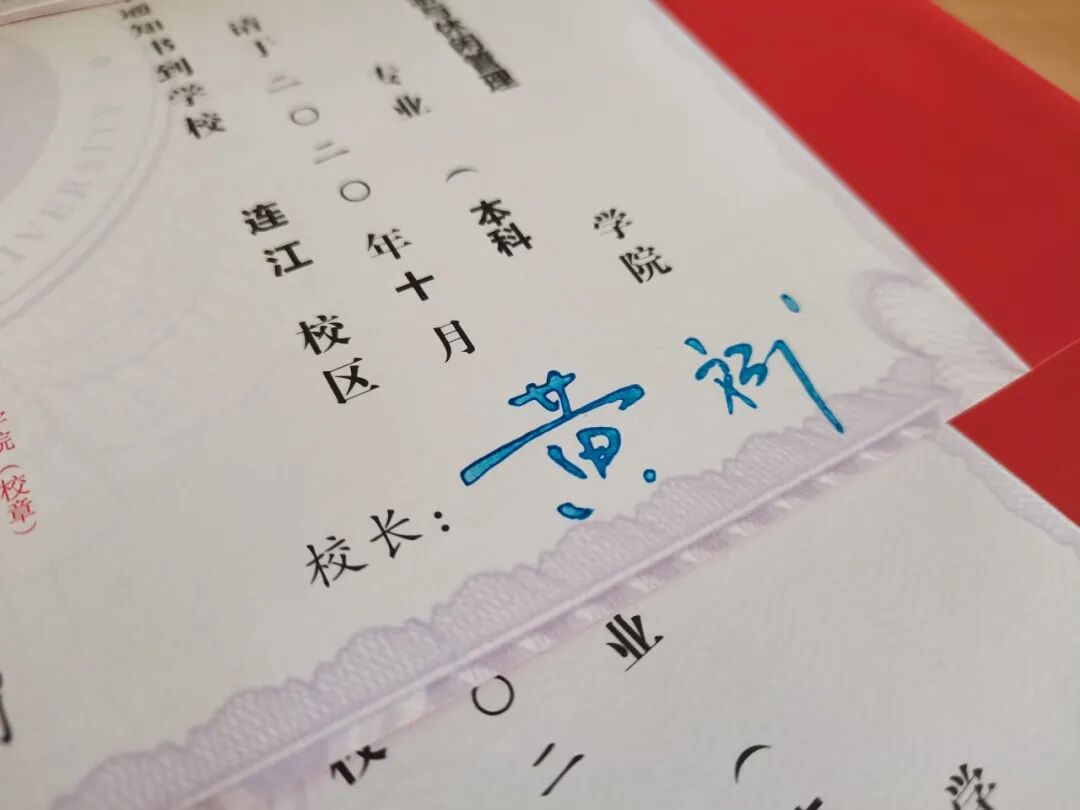 管理 学院
专业 （本科
请于二〇二〇年十月
通知书到学校 连江 校区
校长：黄
学院（校章）
UNIVERSITY
学
业 （
〇二
校